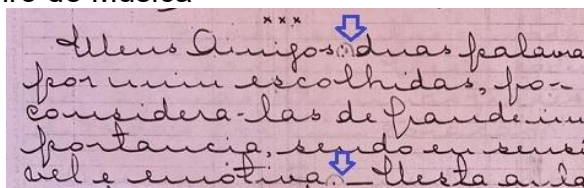 iro de Música
x x x
Meus Amigos: duas palavra
por mim escolhidas, po-
considera-las de grande im
portancia, sendo eu sensi
vel e emotiva. - Nesta aula